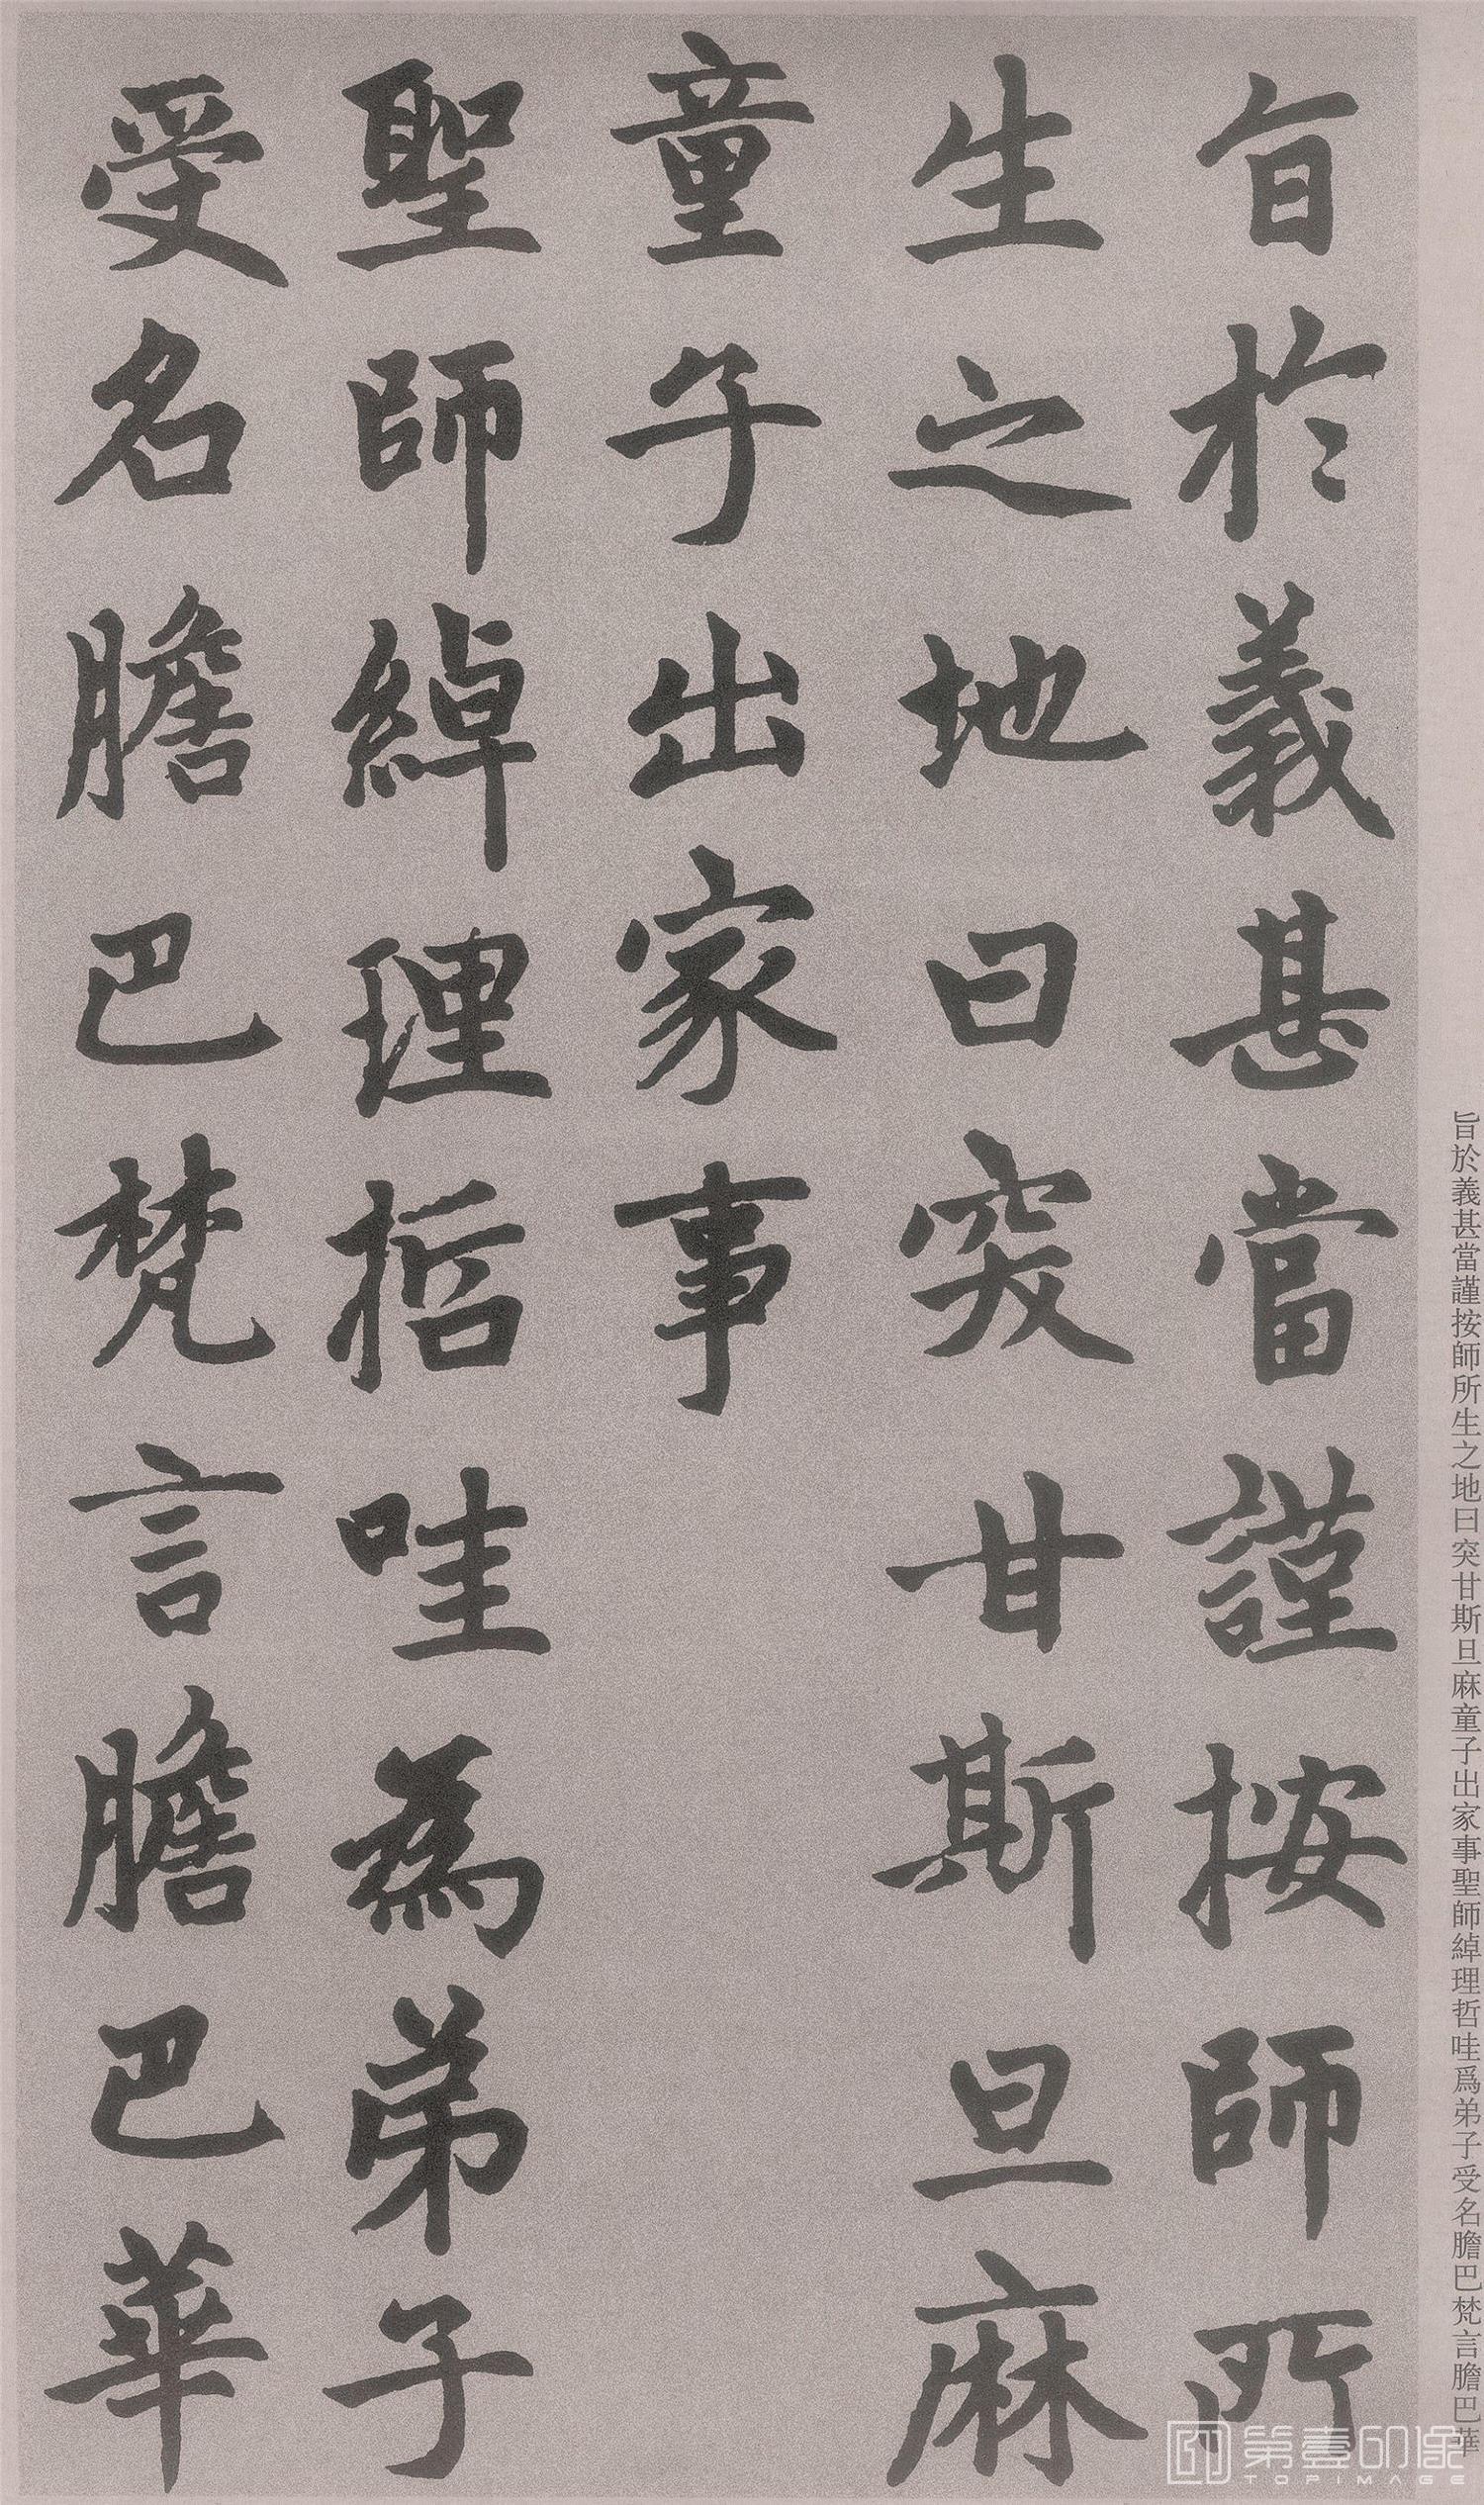 旨於義甚當謹按師所
生之地曰突甘斯旦麻
童子出家事
聖師綽理哲哇為弟子
受名膽巴梵言膽巴華
旨於義甚當謹按師所生之地曰突甘斯旦麻童子出家事聖師綽理哲哇爲弟子受名膽巴梵言膽巴華
第壹印像
TOPIMAGE